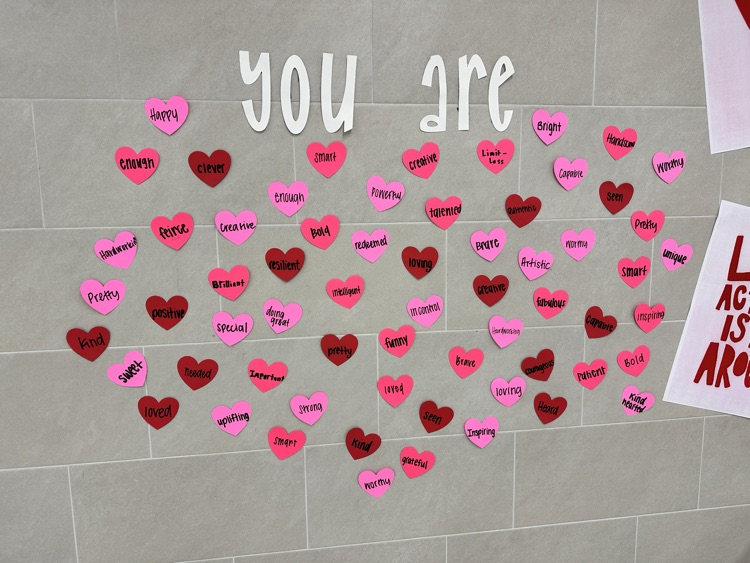 you are
Happy
Bright
Handsome
enough
clever
smart
creative
Limit-
Less
Capable
Worthy
enough
Powerful
seen
talented
authentic
feirce
Creative
Bold
redeemed
Brave
Worthy
Pretty
unique
Handworking
resilient
loving
Artistic
smart
Brilliant
intelligent
creative
fabulous
Pretty
positive
special
doing
great!
in control
Hardworking
capable
inspiring
kind
pretty
funny
Brave
courageous
patient
Bold
sweet
needed
Important
loved
loving
Kind
hearted
loved
uplifting
strong
seen
Heard
smart
kind
Inspiring
grateful
Worthy
L
ACT
IS
AROU